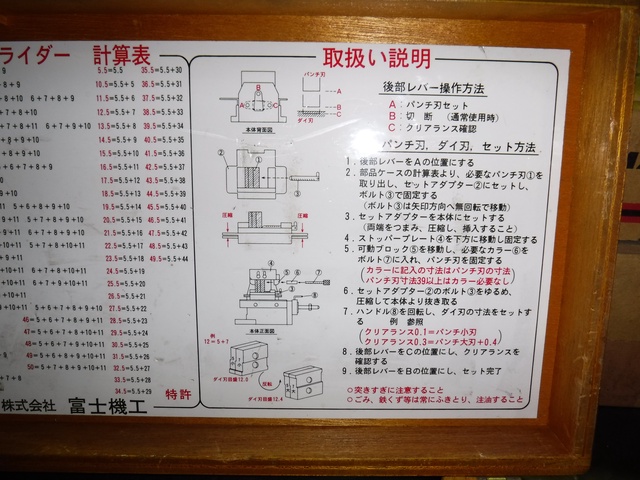 ライダー 計算表
9
5.5=5.5
35.5=5.5+30
10.5=5.5+5
36.5=5.5+31
+8+10 6+7+8+9
11.5=5.5+6
37.5=5.5+32
12.5=5.5+7
38.5=5.5+33
+7+8+9 6+7+9+10
13.5=5.5+8
39.5=5.5+34
14.5=5.5+9
40.5=5.5+35
15.5=5.5+10
41.5=5.5+36
16.5=5.5+11
42.5=5.5+37
17.5=5.5+12
43.5=5.5+38
18.5=5.5+13
44.5=5.5+39
19.5=5.5+14
45.5=5.5+40
20.5=5.5+15
46.5=5.5+41
21.5=5.5+16
47.5=5.5+42
22.5=5.5+17
48.5=5.5+43
23.5=5.5+18
49.5=5.5+44
+11 6+7+8+9
24.5=5.5+19
25.5=5.5+20
26.5=5.5+21
27.5=5.5+22
5+6+7+8+9+10
28.5=5.5+23
46=5+5+7+8+9+11
29.5=5.5+24
47=5+5+7+8+10+11
30.5=5.5+25
48=5+5+7+9+10+11
31.5=5.5+26
49=5+5+8+9+10+11
32.5=5.5+27
50=5+6+8+9+10+11
33.5=5.5+28
34.5=5.5+29
特許
株式会社 富士機工
取扱い説明
パンチ刃
A
B
C
A
B
C
ダイ刃
本体背面図
後部レバー操作方法
A:パンチ刃セット
B:切 断 (通常使用時)
C:クリアランス確認
パンチ刃, ダイ刃, セット方法
1.後部レバーをAの位置にする
2.部品ケースの計算表より、必要なパンチ刃①を
取り出し、セットアダプター②にセットし、
ボルト③で固定する
(ボルト③は矢印方向へ無回転で移動)
3.セットアダプターを本体にセットする
(両端をつまみ、圧縮し、挿入すること)
4.ストッパープレート④を下方に移動し固定する
5.可動ブロック⑤を移動し、必要なカラー⑥を
ボルト⑦に入れ、パンチ刃を固定する
(カラーに記入の寸法はパンチ刃の寸法)
(パンチ刃寸法39以上はカラー必要なし)
6.セットアダプター②のボルト③をゆるめ、
圧縮して本体より抜き取る
7.ハンドル⑧を回転し、ダイ刃の寸法をセットす
る 例 参照
(クリアランス0.1=パンチ小刃)
(クリアランス0.3=パンチ大刃+0.4)
8.後部レバーをCの位置にし、クリアランスを
確認する
9.後部レバーをBの位置にし、セット完了
○突きすぎに注意すること
○ごみ、鉄くず等は常にふきとり、注油すること
②
①
③
圧縮
圧縮
④
⑤
⑥
⑦
⑧
本体正面図
例
12=5+7
ダイ刃目盛12.0
反転
ダイ刃目盛12.4